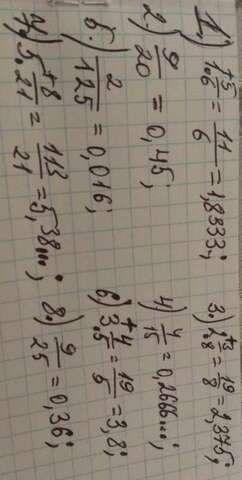 1.) 1 5/6 = 11/6 = 1,8333;
2.) 9/20 = 0,45;
5.) 2/125 = 0,016;
7.) 5 8/21 = 113/21 = 5,38...;
3.) 2 3/8 = 19/8 = 2,375;
4.) 4/15 = 0,2666...;
6.) 3 4/5 = 19/5 = 3,8;
8.) 9/25 = 0,36;